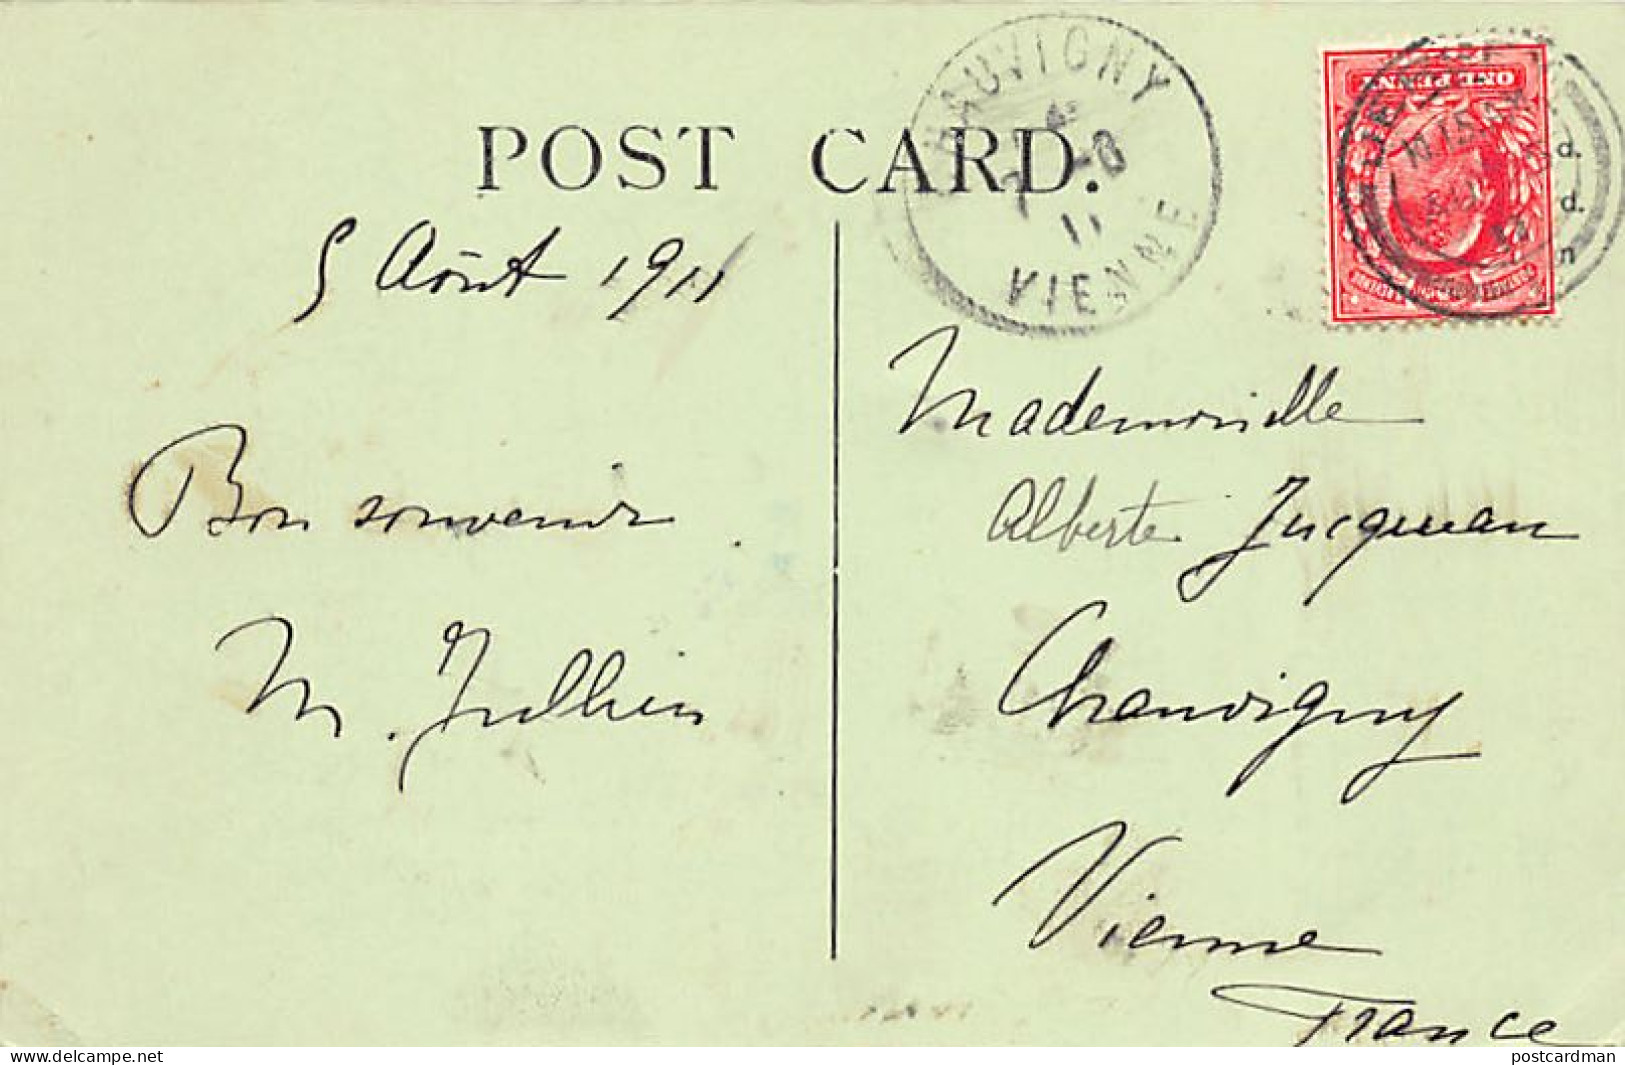 POST CARD.
CHAUVIGNY
11
VIENNE
ONE PENNY
d.
d.
n
5 Août 1911
Bon souvenir
M. Jullien
Mademoiselle
Alberte Jucqueau
Chauvigny
Vienne
France
postcardman.net
postcardman